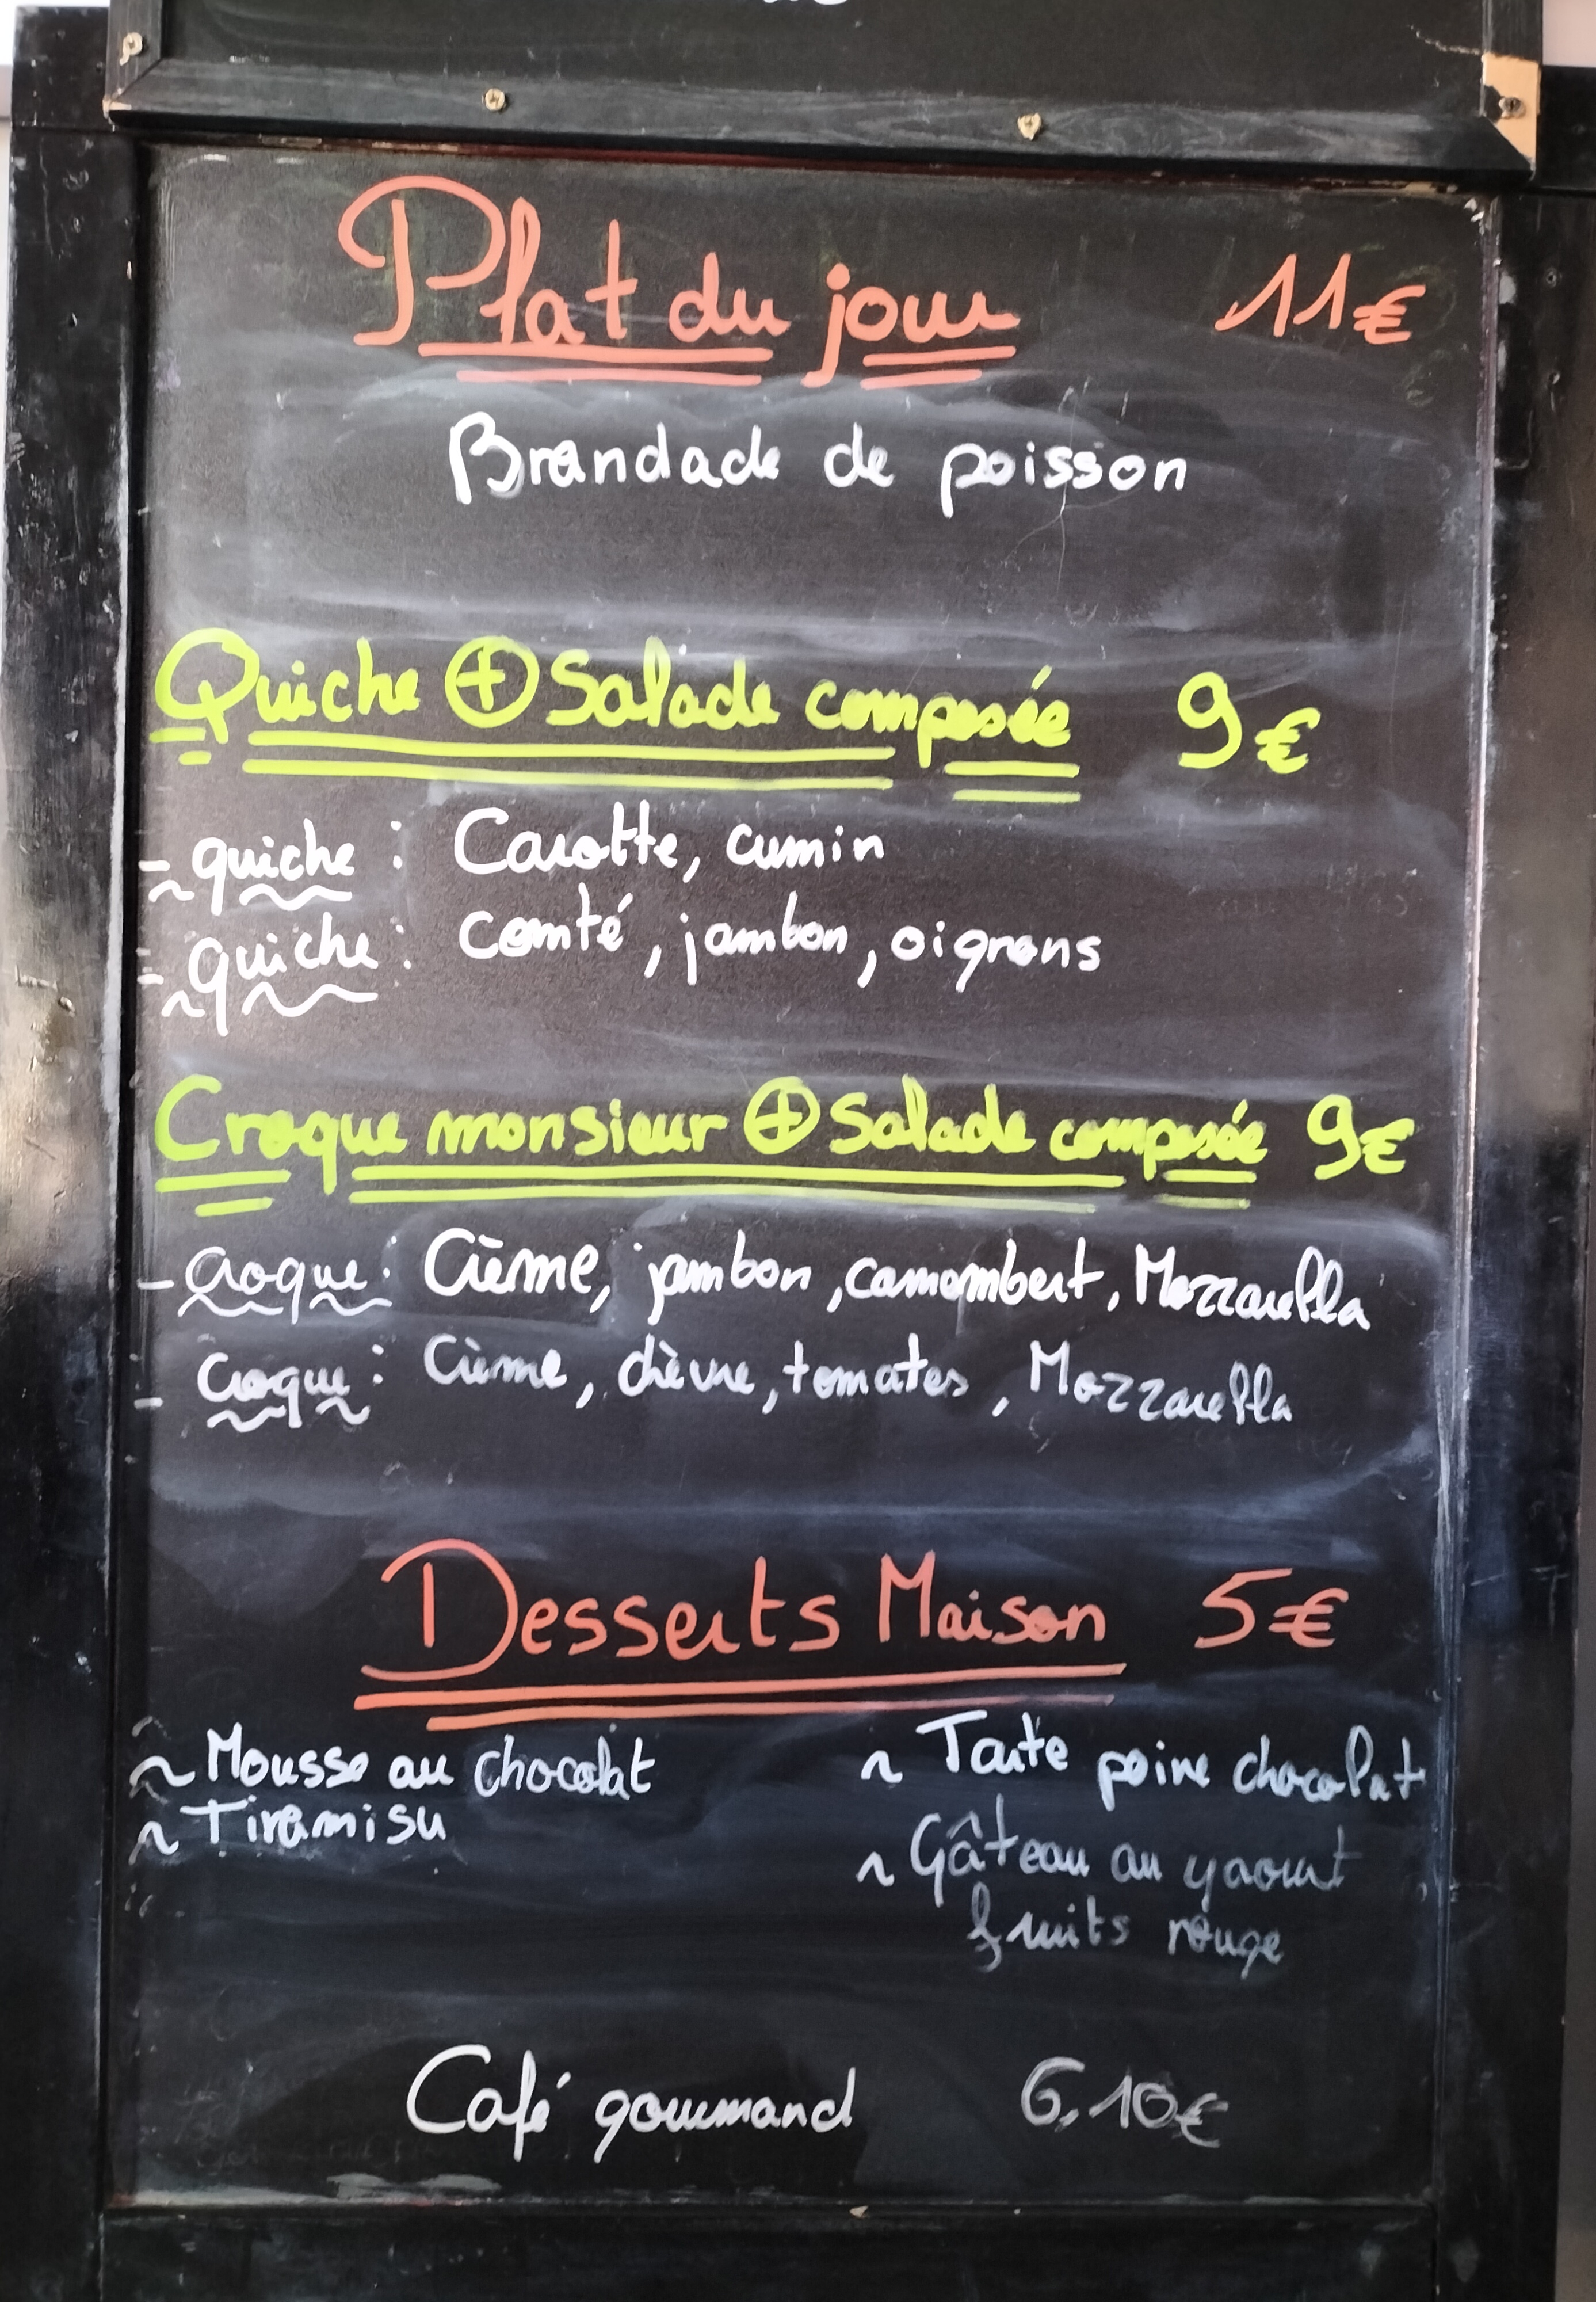 Plat du jour 11€
Brandade de poisson
Quiche + Salade composée 9€
- quiche : Carotte, cumin
- quiche : Comté, jambon, oignons
Croque monsieur + Salade composée 9€
- croque : Crème, jambon, camembert, Mozzarella
- croque : Crème, chèvre, tomates, Mozzarella
Desserts Maison 5€
~ Mousse au chocolat
~ Tiramisu
~ Tarte poire chocolat
~ Gâteau au yaourt
fruits rouge
Café gourmand 6,10€